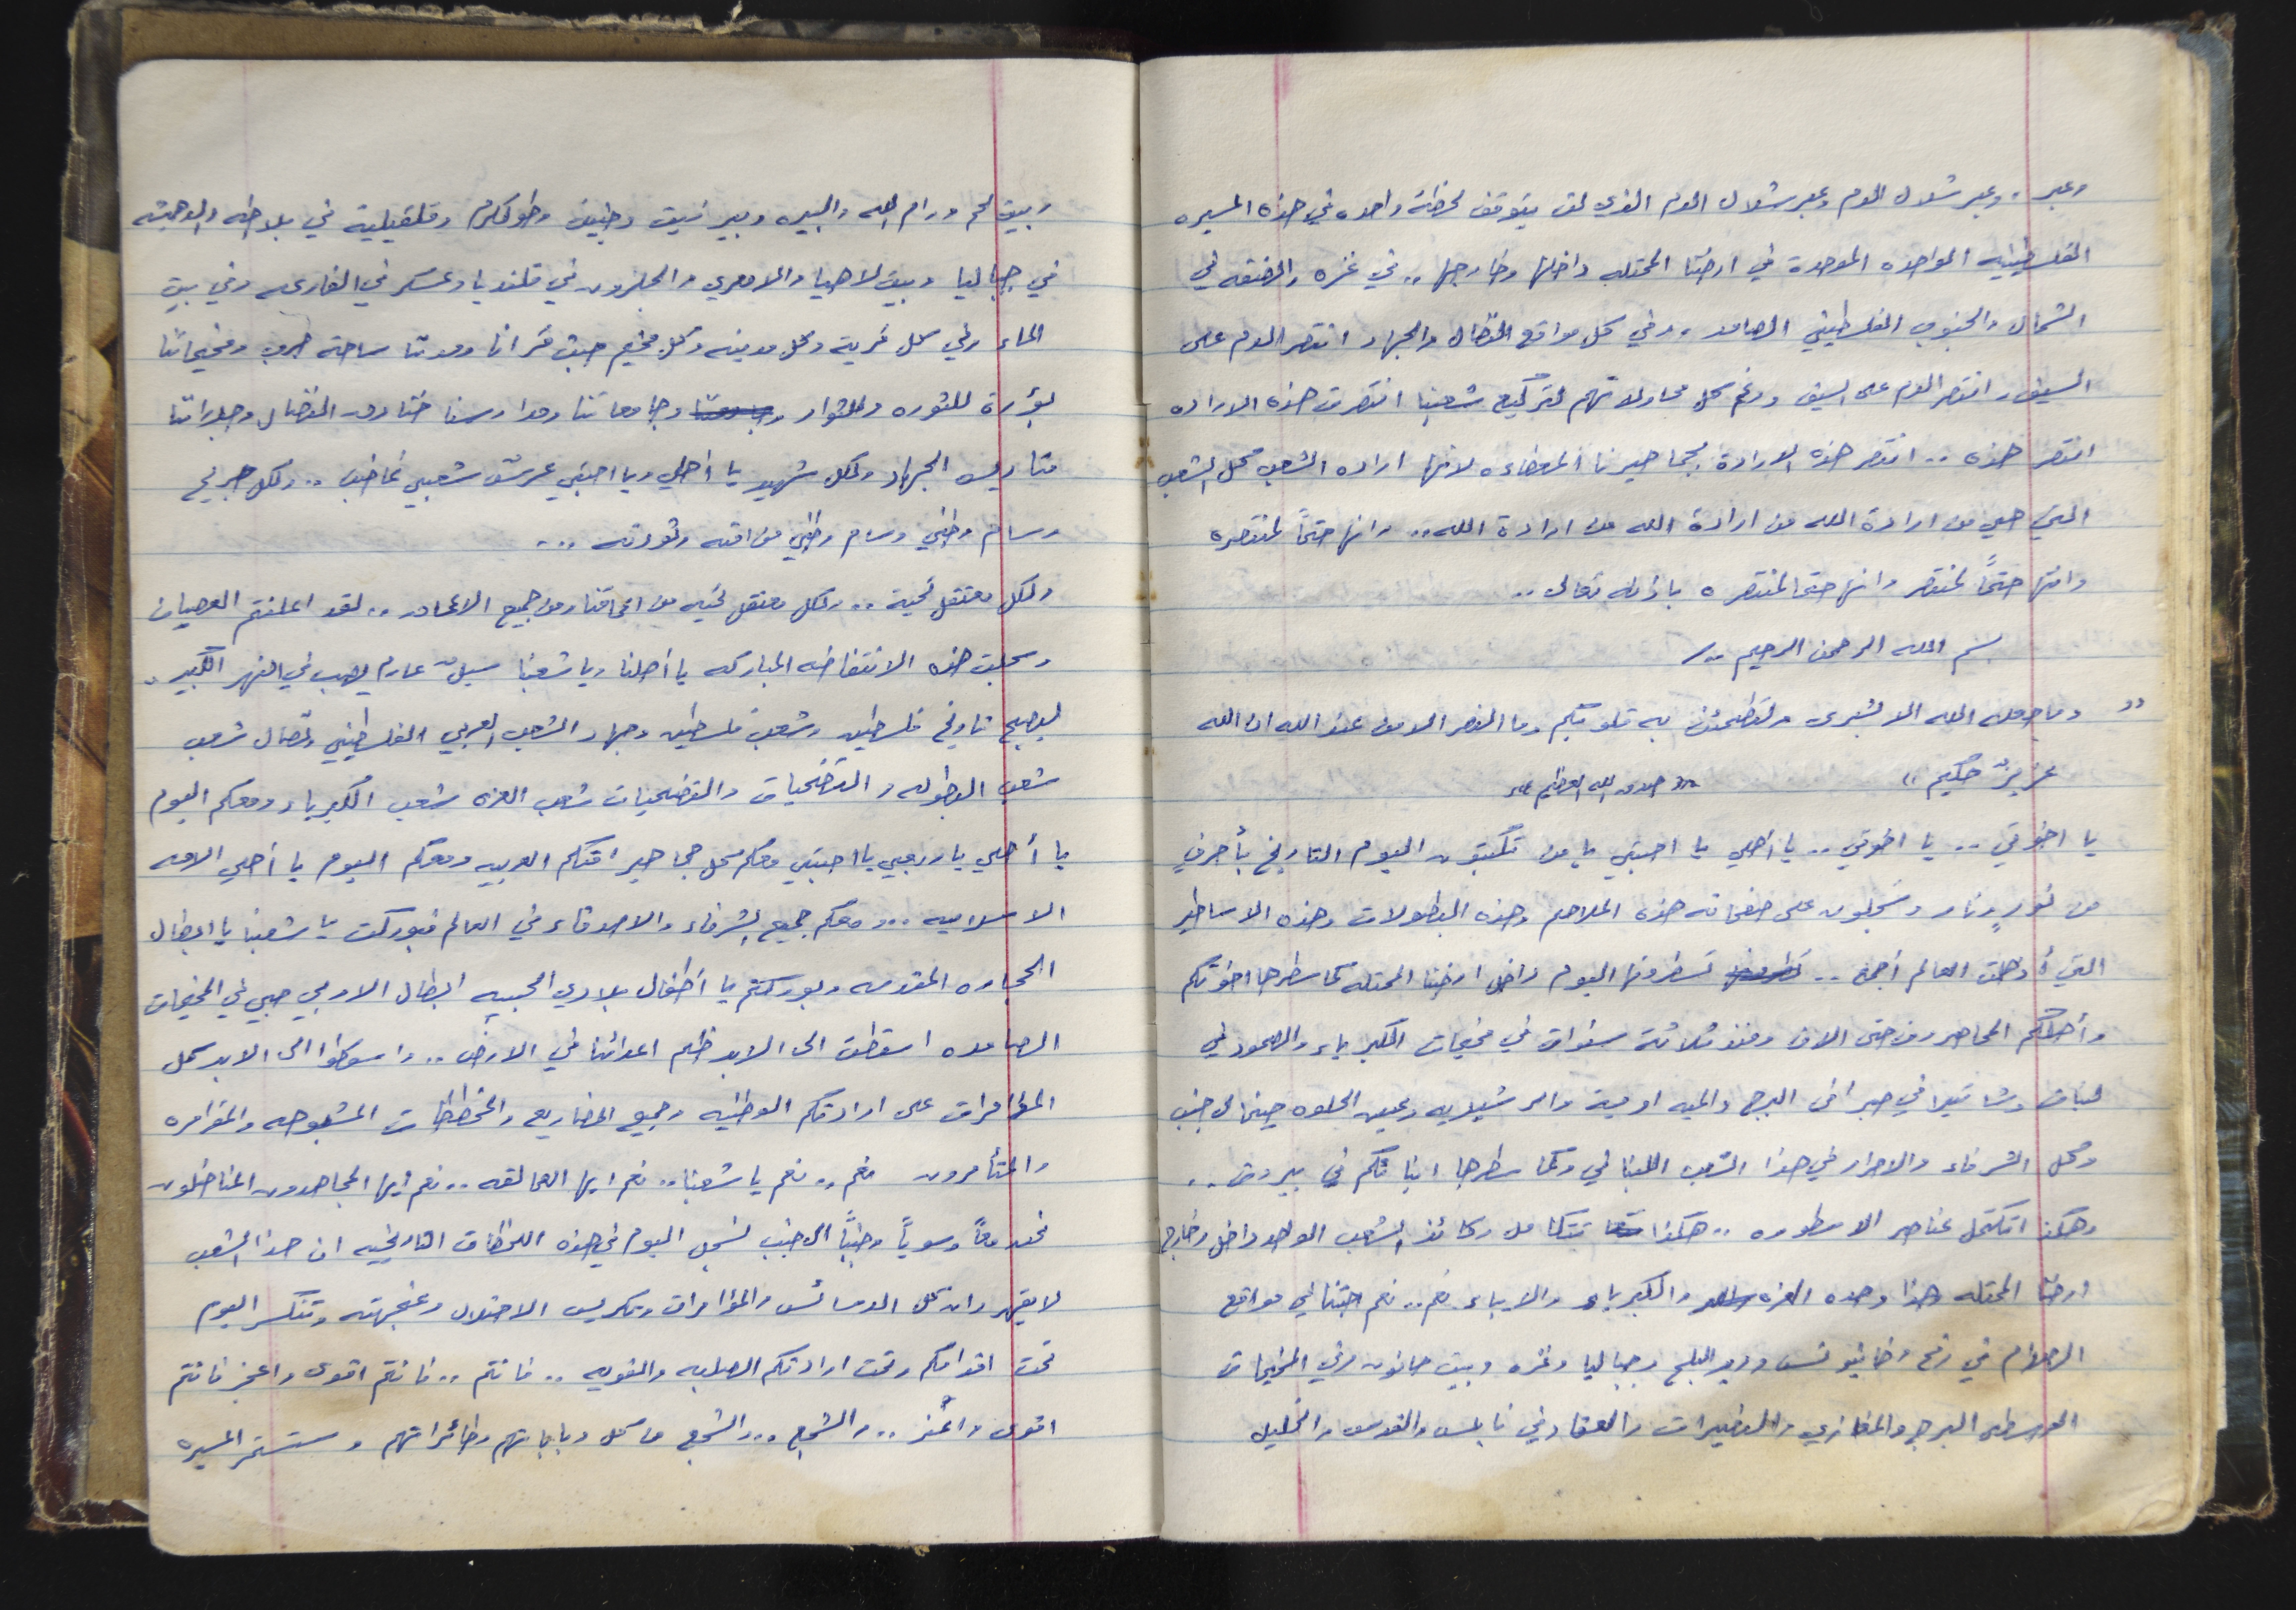 وعبر .. وعبر شلال الدم وعبر شلال الدم الذي لن يتوقف لحظة واحده في هذه المسيره
الفلسطينيه الواحده الموحدة في ارضنا المحتله داخلها وخارجها .. في غزه والضفه في
الشمال والجنوب الفلسطيني الصامد . وفي كل مواقع النضال والجهاد انتصر الدم على
السيف وانتصر الدم على السيف ورغم كل محاولاتهم لتركيع شعبنا انتصرت هذه الاراده
انتصر هذه .. انتصر هذه الارادة بجماهيرنا المعطاءه لانها اراده الشعب كل الشعب
التي هي من ارادة الله من ارادة الله من ارادة الله .. وانها حتماً لمنتصره
وانها حتماً لمنتصر وانها حتما لمنتصره باذنه تعالى ..
بسم الله الرحمن الرحيم ..
" وما جعله الله الا بشرى ولتطمئن به قلوبكم وما النصر الا من عند الله ان الله
عزيزٌ حكيم " " صدق الله العظيم "
يا اخوتي .. يا اخوتي .. يا أهلي يا احبتي يا من تكتبون اليوم التاريخ بأحرفٍ
من نورٍ ونار وتسجلون على صفحاته هذه الملاحم وهذه البطولات وهذه الاساطير
التي أذهلت العالم أجمع .. تسطرونها اليوم داخل ارضنا المحتله كما سطرها اخوتكم
وأهلكم المحاصرون حتى الان ومنذ ثلاثة سنوات في مخيمات الكبرياء والصمود في
لبنان وشاتيلا في صبرا في البرج والميه اوميه والرشيديه وعين الحلوه جنبا الى جنب
وكل الشرفاء والاحرار في هذا الشعب اللبناني وكما سطرها ابنائكم في بيروت ..
وهكذا تكتمل عناصر الاسطوره .. هكذا تتكامل ركائز الشعب الواحد داخل وخارج
ارضنا المحتله هذا وحده العزه والكبرياء والاباء نعم .. نعم احبتنا في مواقع
الصدام في رفح وخانيونس ودير البلح وجباليا وغزه وبيت حانون وفي المخيمات
الوسطى البرج والمغازي والنصيرات والعقاد وفي نابلس والقدس والخليل
وبيت لحم ورام الله والبيره وبير زيت وجنين وطولكرم وقلقيلية في بلاطه والدهيشه
في جباليا وبيت لاهيا والامعري والجلزون في قلنديا وعسكر في الفارعه وفي بيت
الماء وفي كل قرية وكل مدينه وكل مخيم حيث قرانا ومدننا ساحة حرب ومخيماتنا
بؤرة للثوره وللثوار وجامعاتنا ومدارسنا خنادق النضال وجبراتنا
متاريس الجهاد ولكل شهيد يا اهلي ويا احبتي عرسٌ شعبي غاضب .. ولكل جريح
وسام وطني وسام وطني من امته وثورته ...
ولكل معتقل تحية .. ولكل معتقل تحيه من اعماقنا ومن جميع الاعماق .. لقد اعلنتم العصيان
وسجلت هذه الانتفاضه المباركه يا أهلنا ويا شعبنا سيلٌ عارم يصب في النهر الكبير ..
ليصبح تاريخ فلسطين وشعب فلسطين وجهاد الشعب العربي الفلسطيني ونضال شعب
شعب البطوله والتضحيات والتضحيات شعب العزه شعب الكبرياء ومعكم اليوم
يا أهلي يا ربعي يا احبتي معكم كل جماهير امتكم العربيه ومعكم اليوم يا أهلي الامه
الاسلاميه ... ومعكم جميع الشرفاء والاصدقاء في العالم فبوركت يا شعبنا يا ابطال
الحجاره المقدسه وبوركتم يا أطفال بلادي الحبيبه ابطال الاربي جي في المخيمات
الصامده اسقطت الى الابد ظلم اعدائنا في الارض .. واسقطوا الى الابد كل
المؤامرات على ارادتكم الوطنيه وجميع المشاريع والمخططات المشبوهه والمؤامره
والمتأمرون نعم .. نعم يا شعبنا .. نعم ايها العمالقه .. نعم ايها المجاهدون المناضلون
نحن معاً وسوياً وجنباً الى جنب نسجل اليوم في هذه اللحظات التاريخيه ان هذا الشعب
لا يقهر وان كل الدسائس والمؤامرات وتكريس الاحتلال وعنجهيته وتنكسر اليوم
تحت اقدامكم وتحت ارادتكم الصلبه والقويه .. فانتم .. فانتم اقوى واعز فانتم
اقوى واعز .. والشجع .. والشجع من كل دباباتهم وطائراتهم وستستمر المسيره